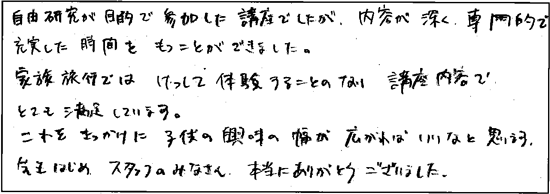 自由研究が目的で参加した講座でしたが、内容が深く、専門的で
充実した時間をもつことができました。
家族旅行では けっして体験することのない 講座内容で
とても満足しています。
これをきっかけに子供の興味の幅が広がればいいなと思います。
先生はじめ、スタッフのみなさん、本当にありがとうございました。